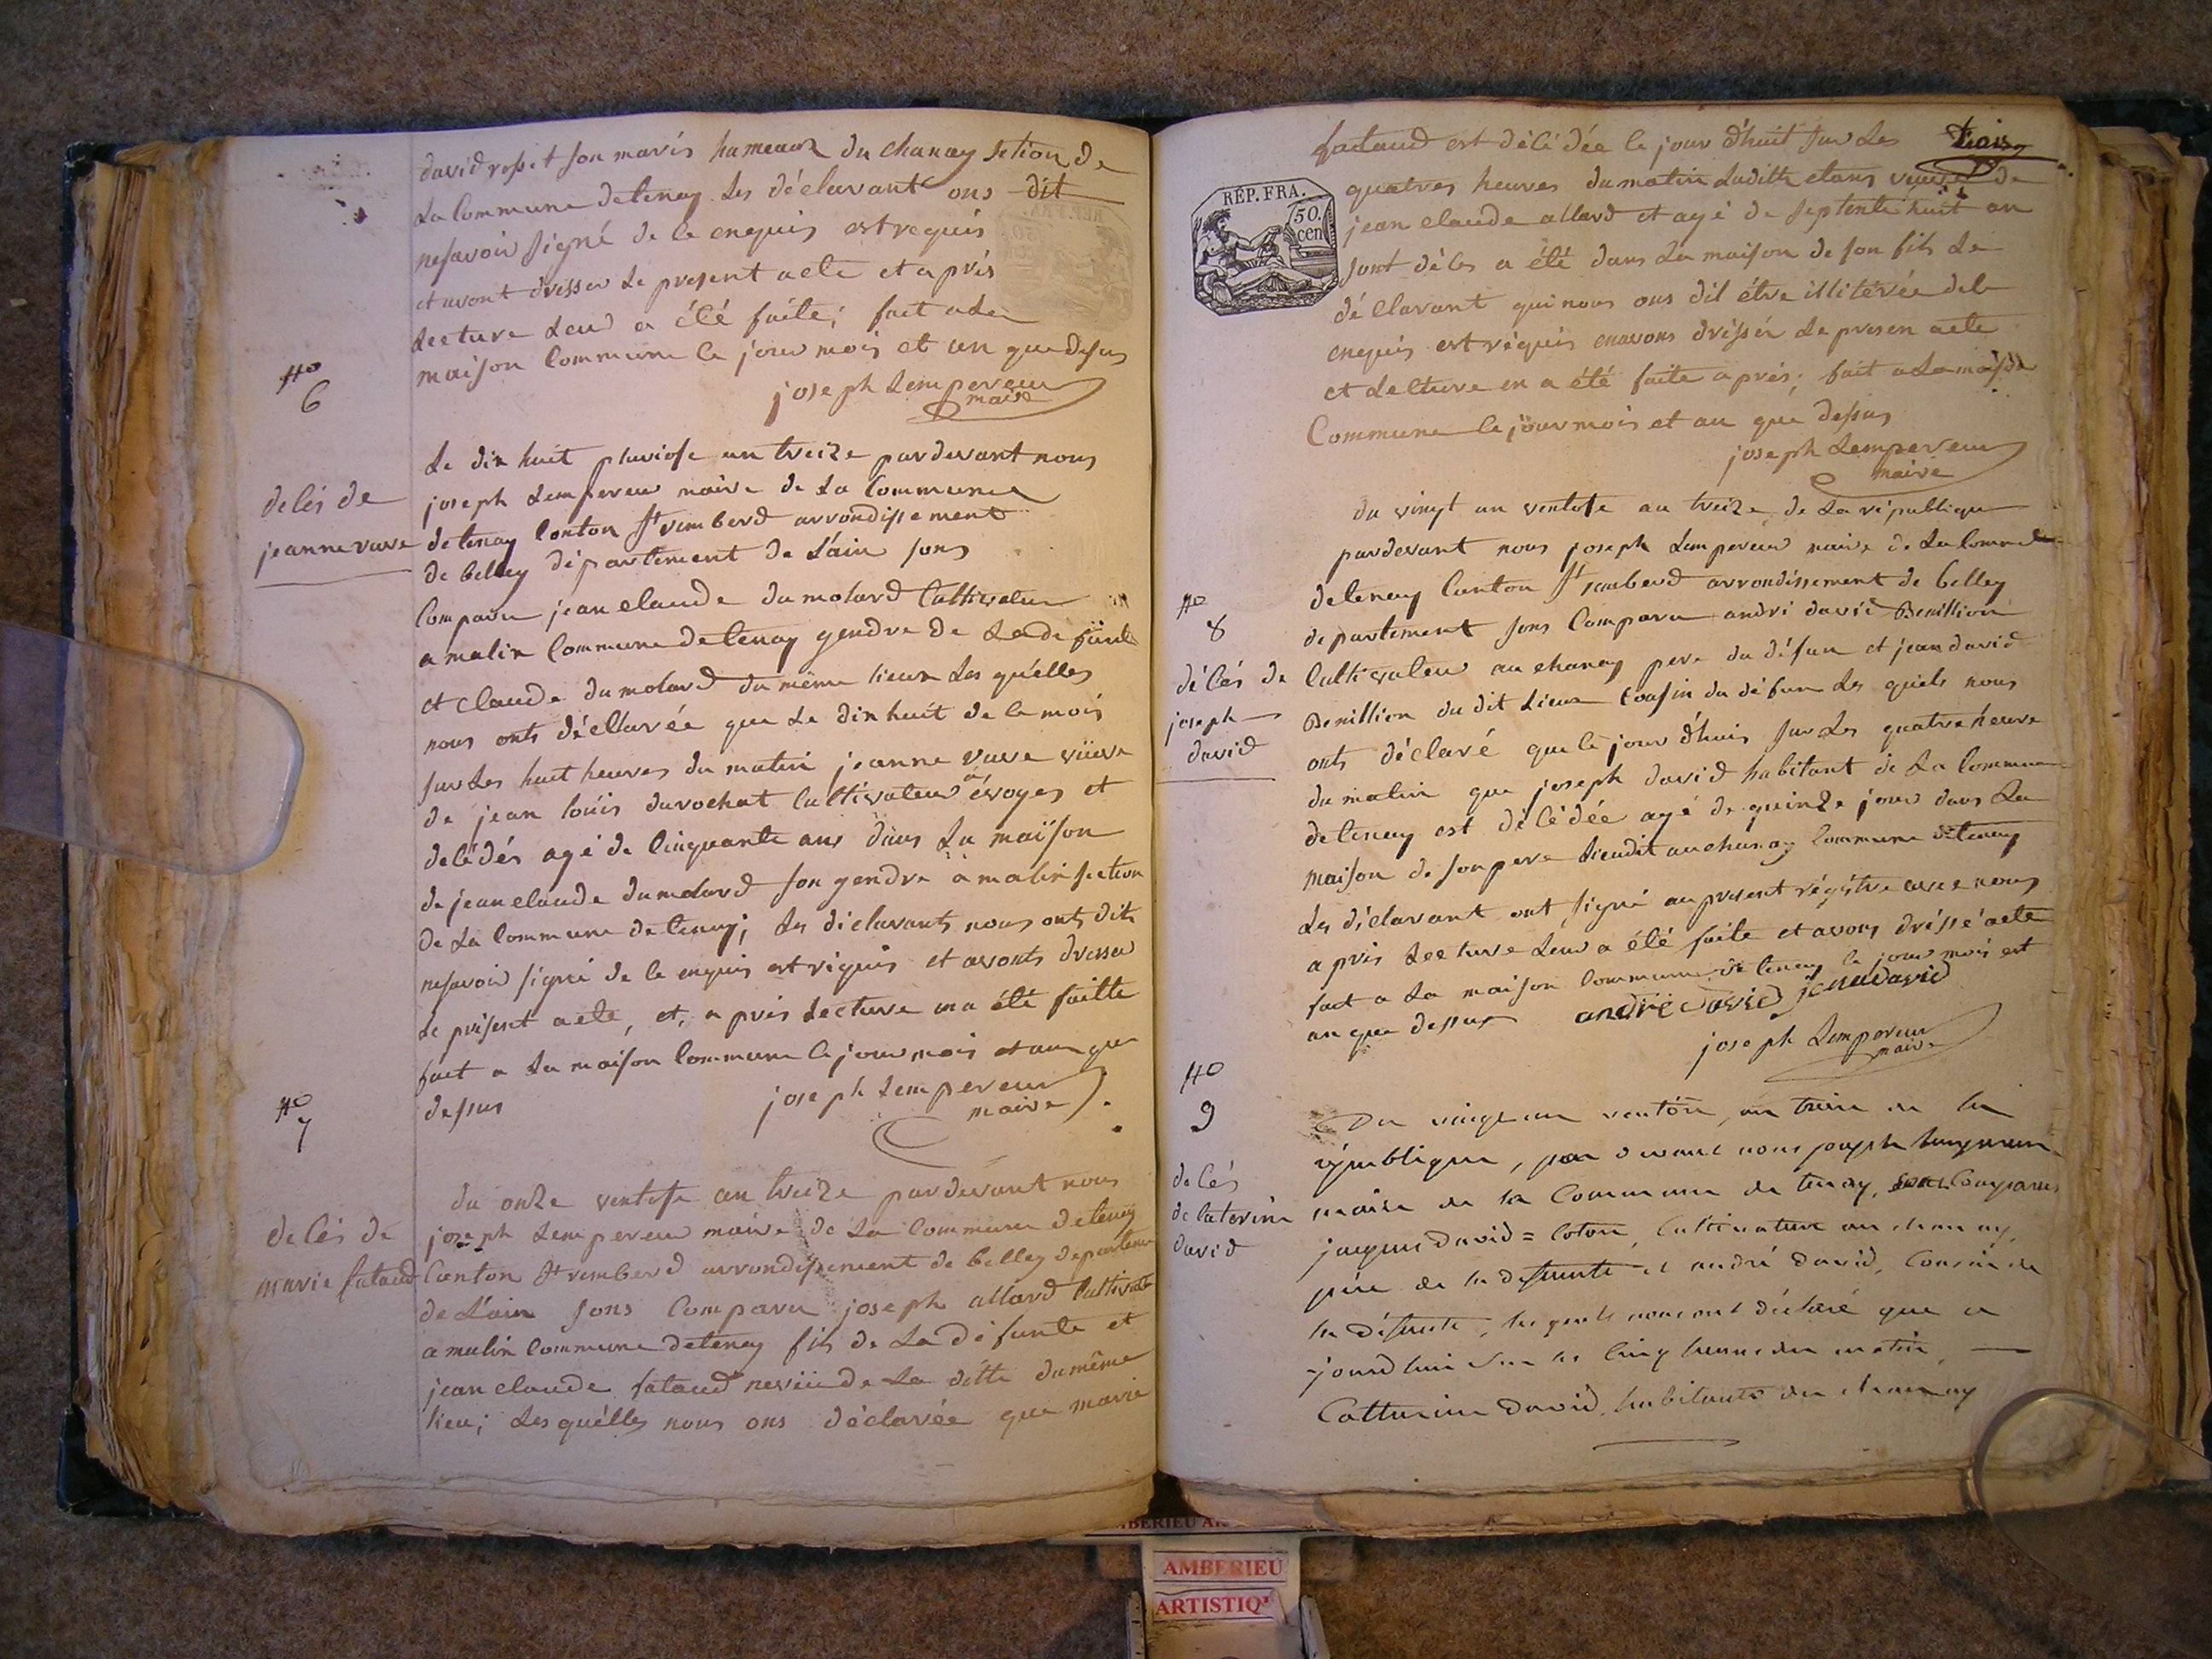 david rosset son maris hameaux du chanay setion de
La Commune detenay Les déclarant ons dit
nesavoir signé de ce enquis est requis
et avont dresser Le present acte et après
Lecture Leur a été faite; fait a La
maison Commune le jour mois et an que desus
joseph Lempereur
maire
No
6
decés de
jeanne vuve
Le dix huit pluviose an treize pardevant nous
joseph Lempereur maire de La Commune
detenay Conton St remberd arrondissement
de belley département de L'ain sons
Comparu jean claude dumolard Cultivateur
a malix Commune detenay gendre de La defunte
et claude dumolard du même lieux Les quélles
nous onts déclarée que Le dix huit de ce mois
sur Les huit heures du matin jeanne vuve vüeve
de jean loüis durochat cultivateur à évoges et
décédés agé de Cinquante ans dans La maïson
de jean claude dumolard son gendre à malix section
de La Commune de tenay; Les déclarants nous onts dits
nesavoir signé de ce enquis est réquis et avonts dresser
Le présent acte, et, après Lecture en a été faitte
fait a La maison Commune le jour mois et an que
dessus
joseph Lempereur
maire
No
7
decés de
marie fataud
du onze ventose an treize pardevant nous
joseph Lempereur maire de La Commune detenay
Canton St remberd arrondissement de belley departement
de L'ain sons Comparu joseph allard Cultivat
a malix Commune detenay fils de La défunte et
jean claude fataud neviü de La ditte du même
lieu; Les quélles nous ons déclarée que marie
trois
RÉP. FRA.
50.
cen
fataud est décédée ce jour d'huit sur Les
quatres heures du matin Laditte etans veuve de
jean claude allard et agé de septente huit an
sont décés a été dans La maison de son fils Le
déclarant qui nous ons dit être illitérée de ce
enquis est réquis enavons dressér Le presen acte
et Lecture en a été faite après; fait a La maison
Commune le jour mois et an que dessus
joseph Lempereur
maire
No
8
décés de
joseph
david
du vingt un ventose an treize de La république
pardevant nous joseph Lempereur maire de La Commune
detenay Canton St remberd arrondissement de belley
departement sons Comparu andré david Benillion
Cultivateur au chanay pere du défun et jean david
Benillion du dit Lieux Cousin du défun Les quels nous
onts déclaré que ce jour d'huis sur Les quatre heure
du matin que joseph david habitant de La Commune
detenay est décédée agé de quinze jour dans La
maison de son pere Lieudit au chanay Commune detenay
Les déclarant ont signé au present régistre avec nous
après Lecture Leur a été faite et avons dréssé acte
fait a La maison Commune de tenay le jour mois est
an que dessus andré david jean david
joseph Lempereur
maire
No
9
decés
de caterine
david
Du vingt un ventôse, an treize de la
république, par devant nous joseph Lempereur
maire de la Commune de tenay, sont Comparus
jacques david = Coton, Cultivateur au chanay,
père de la defunte et andré david, Cousin de
la défunte, les quels nous ont déclaré que ce
jourd'hui sur les Cinq heures du matin,
Catherine david, habitante du chanay
AMBERIEU
AMBERIEU
ARTISTIQ'